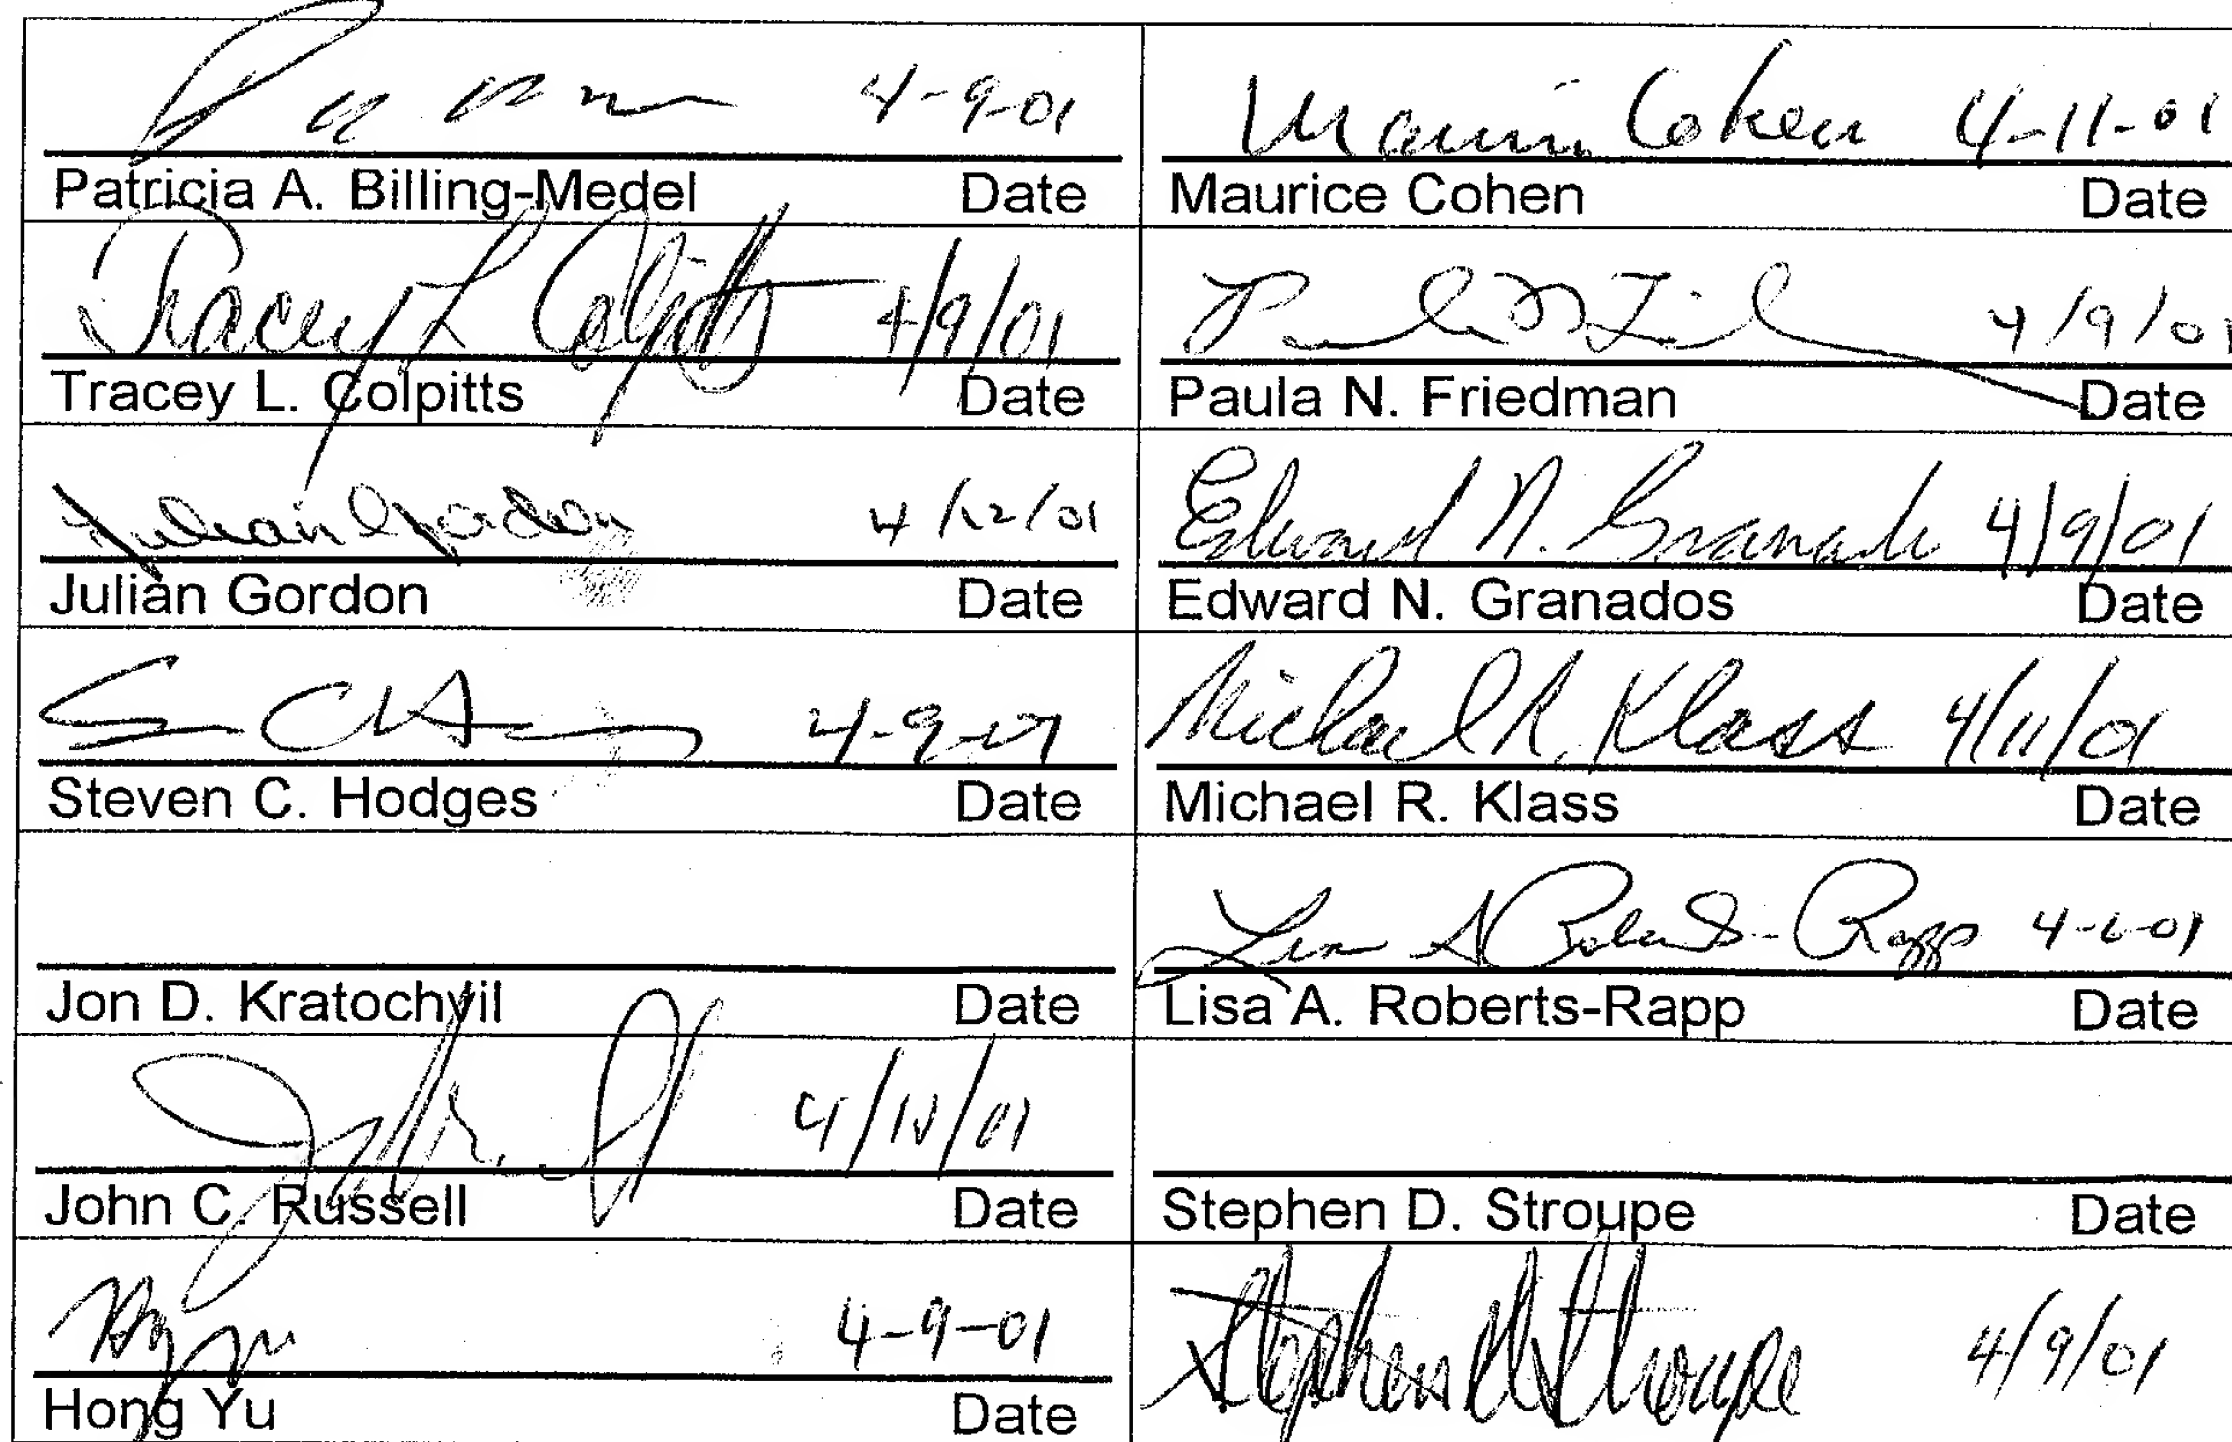 4-9-01 Maurice Cohen 4-11-01
Patricia A. Billing-Medel Date Maurice Cohen Date
Tracey L Colpitts 4/9/01 4/9/01
Tracey L. Colpitts Date Paula N. Friedman Date
Julian Gordon 4/12/01 Edward N. Granados 4/9/01
Julian Gordon Date Edward N. Granados Date
4-9-01 Michael R. Klass 4/11/01
Steven C. Hodges Date Michael R. Klass Date
Lisa A Roberts-Rapp
Jon D. Kratochvil Date Lisa A. Roberts-Rapp Date
John C. Russell Date Stephen D. Stroupe Date
4-9-01 Stephen D Stroupe 4/9/01
Hong Yu Date